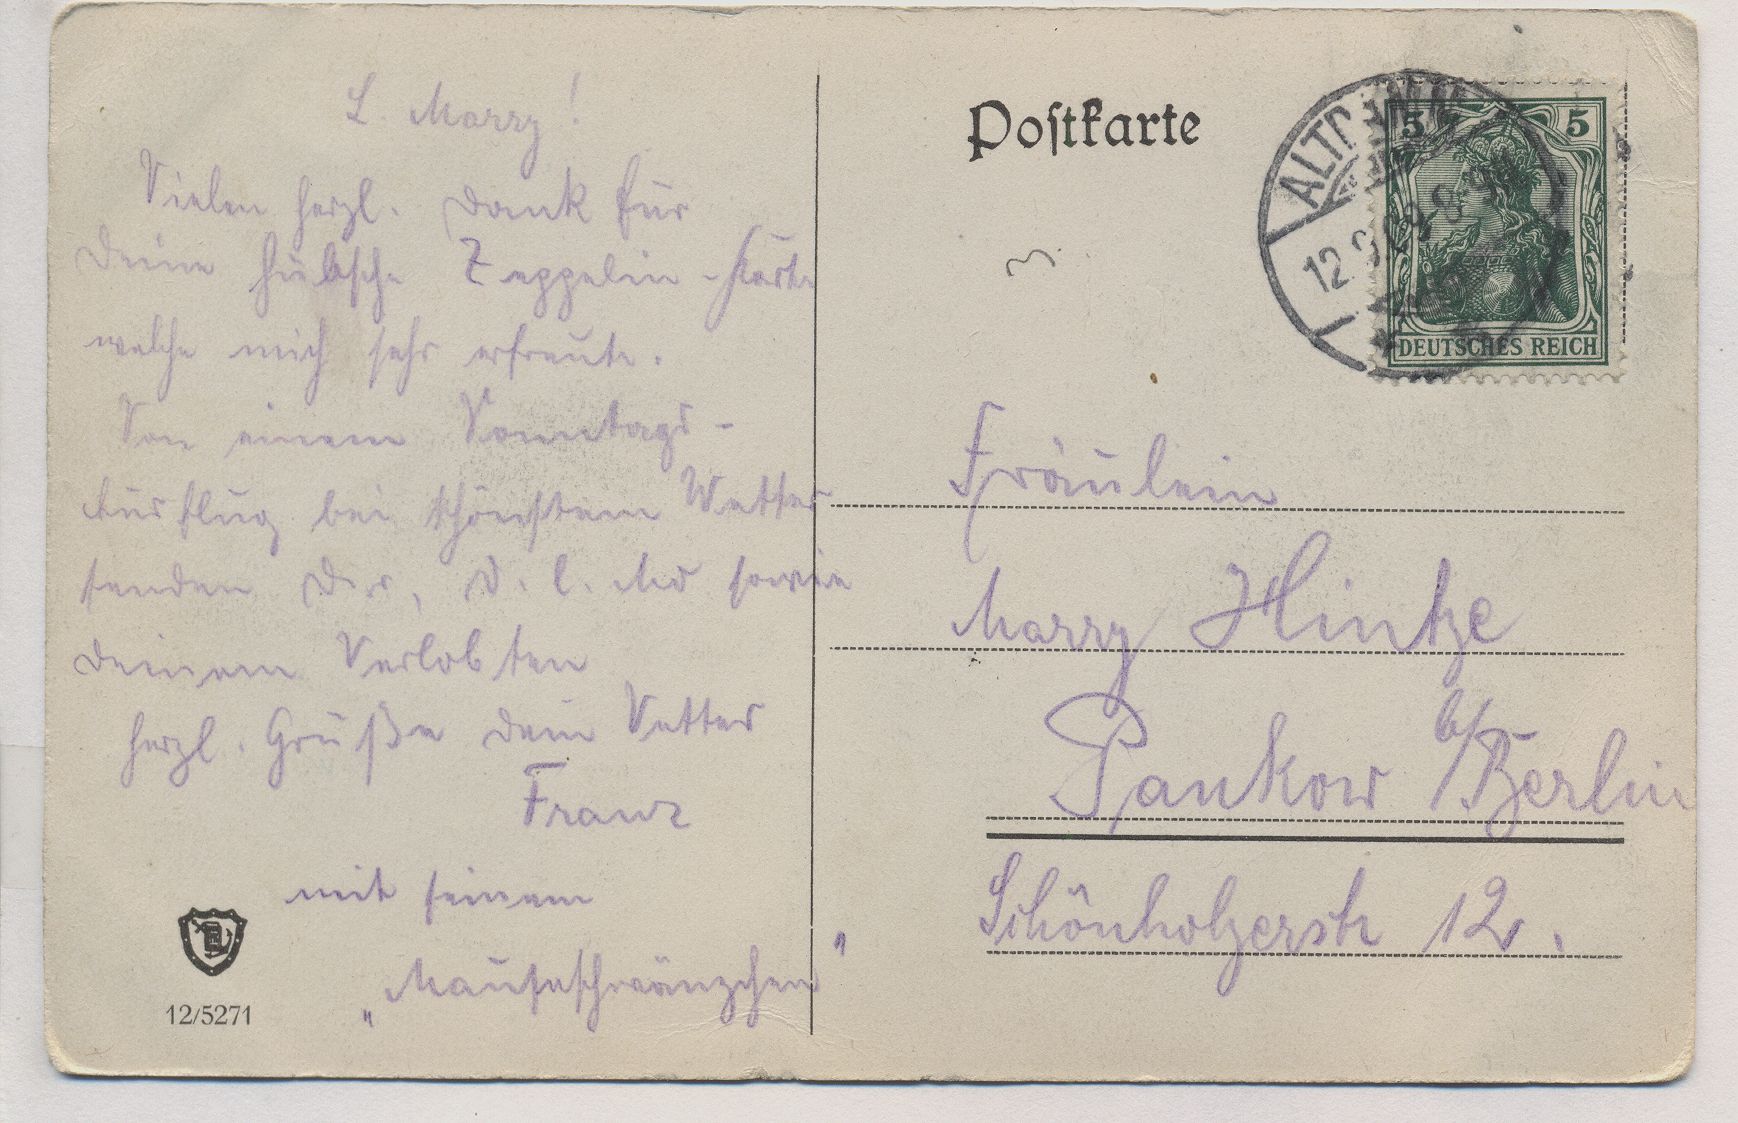 L. Marzy!
Vielen herzl. Dank für
Deine hübsche Zeppelin-Karte
welche mich sehr erfreute.
Von einem Sonntags-
Ausflug bei schönstem Wetter
senden Dir, D. l. sowie
Deinem Verlobten
herzl. Grüße Dein Vetter
Franz
mit seinem
„Mauseschwänzchen"
12/5271
Postkarte
12.9.09.8-9
5 5
DEUTSCHES REICH
Fräulein
Marzy Hintze
Pankow b/Berlin
Schönholzerstr 12.